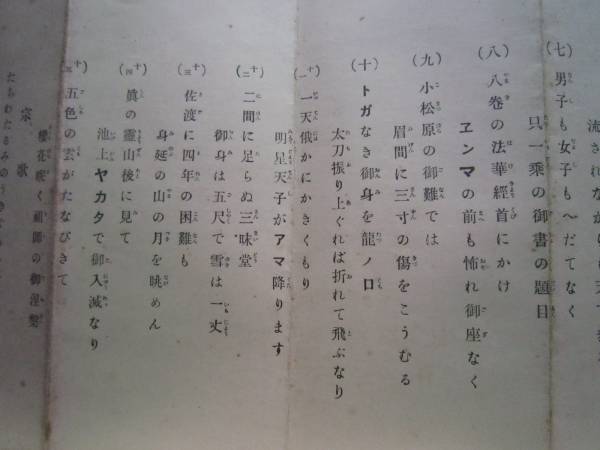 流されながらも
(七)男子も女子もへだてなく
只一乘の御書の題目
(八)八卷の法華經首にかけ
ヱンマの前も怖れ御座なく
(九)小松原の御難では
眉間に三寸の傷をこうむる
(十)トガなき御身を龍ノ口
太刀振り上ぐれば折れて飛ぶなり
(十一)一天俄かにかきくもり
明星天子がアマ降ります
(十二)二間に足らぬ三昧堂
御身は五尺で雪は一丈
(十三)佐渡に四年の困難も
身延の山の月を眺めん
(十四)眞の靈山後に見て
池上ヤカタで御入滅なり
(十五)五色の雲がたなびきて
櫻花咲く祖師の御涅槃
宗歌
たちわたるみのうき